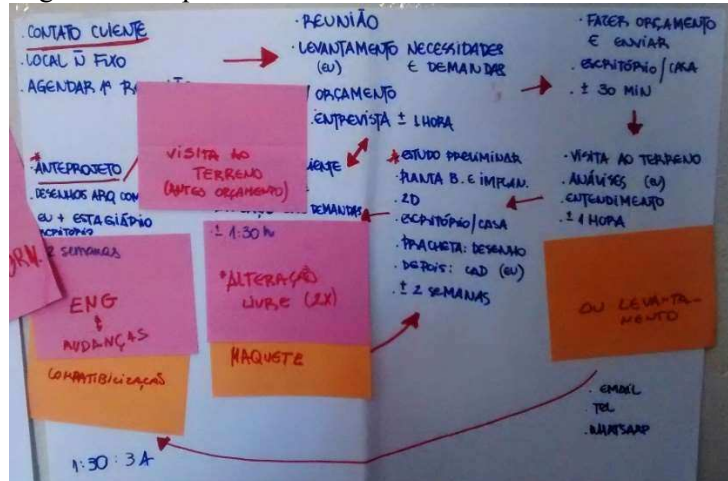 . CONTATO CLIENTE
. LOCAL Ñ FIXO
. AGENDAR 1ª
. REUNIÃO
. LEVANTAMENTO NECESSIDADES
(EU) E DEMANDAS
/ ORÇAMENTO
. ENTREVISTA ± 1 HORA
. FAZER ORÇAMENTO
E ENVIAR
. ESCRITÓRIO/CASA
. ± 30 MIN
VISITA AO
TERRENO
(ANTES ORÇAMENTO)
* ANTEPROJETO
. DESENHOS ARQ COM
EU + ESTAGIÁRIO
ESCRITÓRIO
2 semanas
DEMANDAS
. ± 1:30 h
* ALTERAÇÃO
LIVRE (2X)
MAQUETE
* ESTUDO PRELIMINAR
. PLANTA B. E IMPLAN.
. 2D
. ESCRITÓRIO/CASA
. PRACHETA: DESENHO
. DEPOIS: CAD (EU)
. ± 2 SEMANAS
. VISITA AO TERRENO
. ANÁLISES (EU)
. ENTENDIMENTO
. ± 1 HORA
OU LEVANTA-
MENTO
ENG
MUDANÇAS
COMPATIBILIZAÇÃO
. EMAIL
. TEL
. WHATSAPP
1:30 : 3A